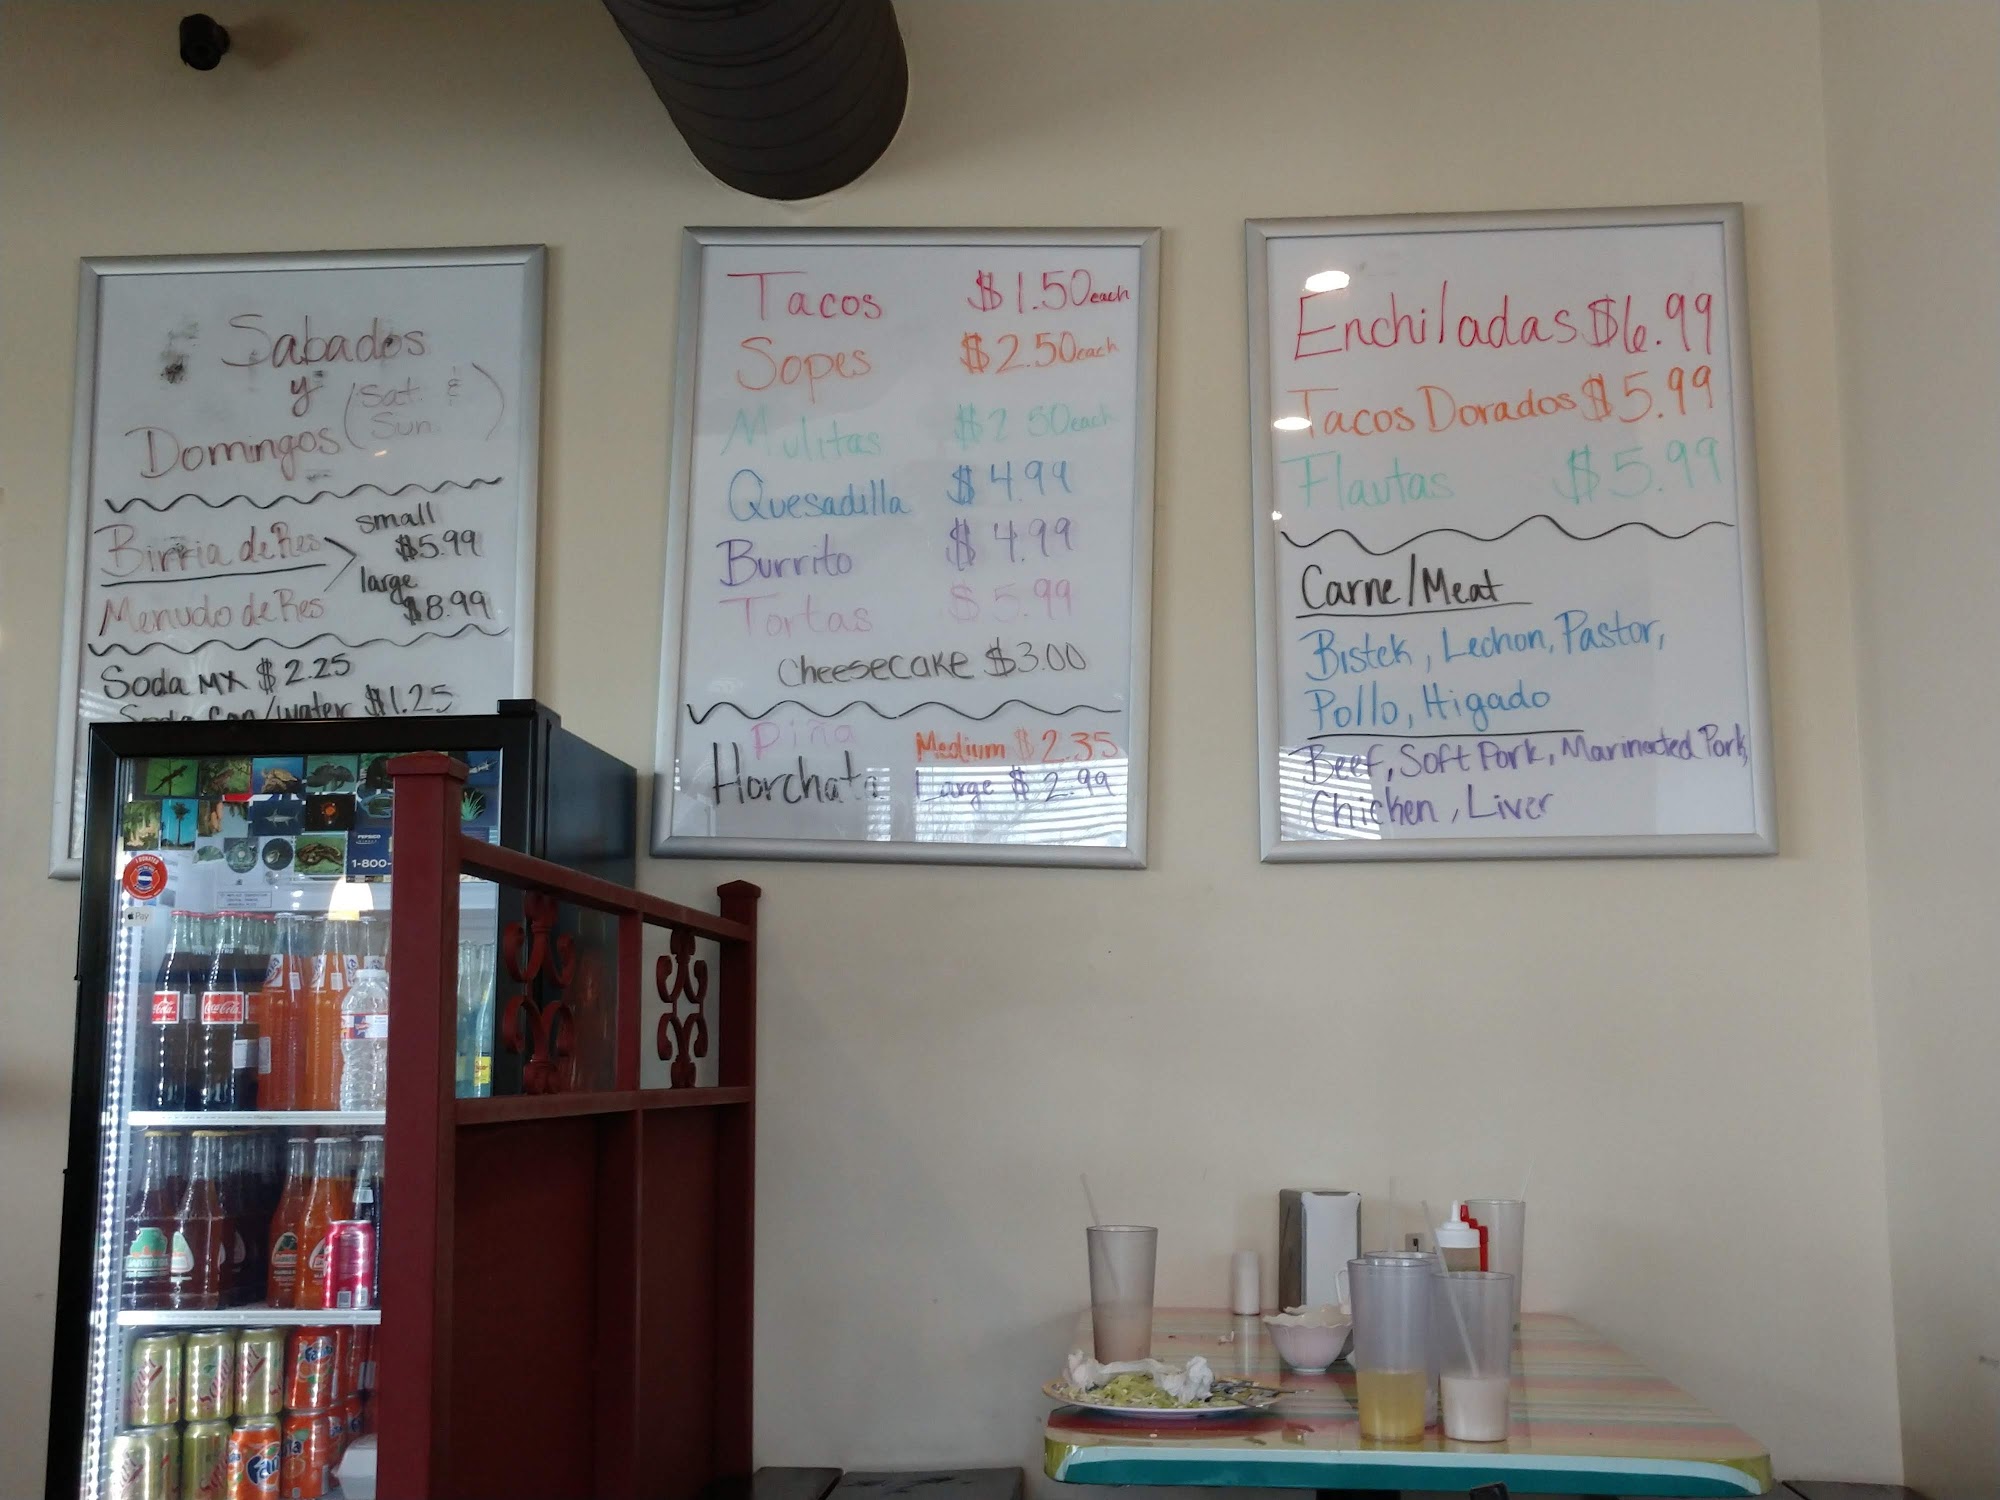 Sabados
y (Sat. &
Sun)
Domingos
small
Birria de Res $5.99
large
Menudo de Res $8.99
Soda MX $2.25
Soda Can/water $1.25
Tacos $1.50 each
Sopes $2.50 each
Mulitas $2.50 each
Quesadilla $4.99
Burrito $4.99
Tortas $5.99
Cheesecake $3.00
Piña
Medium $2.35
Horchata
Large $2.99
Enchiladas $6.99
Tacos Dorados $5.99
Flautas $5.99
Carne/Meat
Bistek, Lechon, Pastor,
Pollo, Higado
Beef, Soft Pork, Marinated Pork,
Chicken, Liver
1-800-
Pay
Coca-Cola
Coca-Cola
Fanta
Fanta